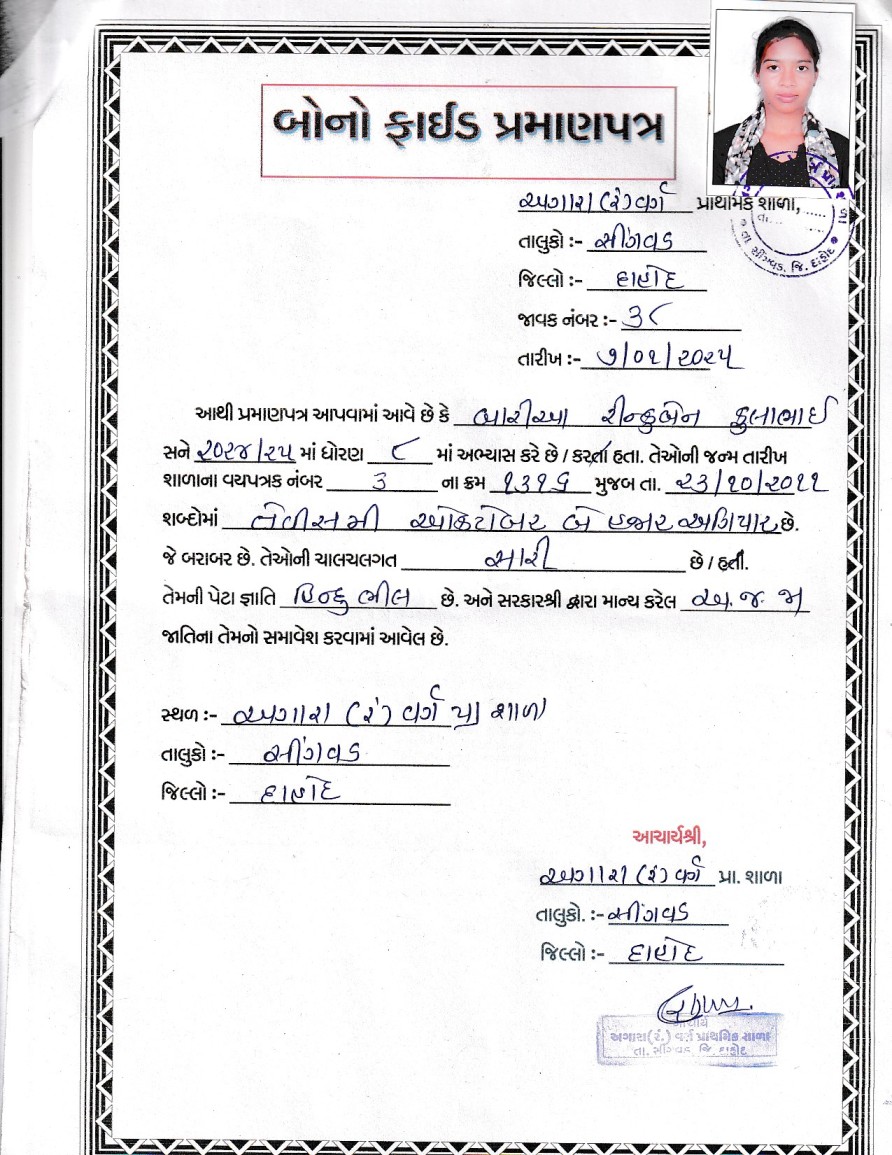 બોનો ફાઈડ પ્રમાણપત્ર
અગારા (રં) વર્ગ પ્રાથમિક શાળા,
તા. સીંગવડ, જિ. દાહોદ
તાલુકો :- સીંગવડ
જિલ્લો :- દાહોદ
જાવક નંબર :- ૩૮
તારીખ :- ૭/૦૧/૨૦૨૫
આથી પ્રમાણપત્ર આપવામાં આવે છે કે બારીઆ રીન્કુબેન ફુલાભાઈ
સને ૨૦૨૪/૨૫ માં ધોરણ ૮ માં અભ્યાસ કરે છે / કરતા હતા. તેઓની જન્મ તારીખ
શાળાના વયપત્રક નંબર ૩ ના ક્રમ ૧૩૧૬ મુજબ તા. ૨૩/૧૦/૨૦૧૧
શબ્દોમાં તેવીસમી ઓક્ટોબર બે હજાર અગિયાર છે.
જે બરાબર છે. તેઓની ચાલચલગત સારી છે / હતી.
તેમની પેટા જ્ઞાતિ હિન્દુ ભીલ છે. અને સરકારશ્રી દ્વારા માન્ય કરેલ અ.જ.જા
જાતિના તેમનો સમાવેશ કરવામાં આવેલ છે.
સ્થળ :- અગારા (રં) વર્ગ પ્રા શાળા
તાલુકો :- સીંગવડ
જિલ્લો :- દાહોદ
આચાર્યશ્રી,
અગારા (રં) વર્ગ પ્રા. શાળા
તાલુકો. :- સીંગવડ
જિલ્લો :- દાહોદ
આચાર્ય
અગારા(રં.) વર્ગ પ્રાથમિક શાળા
તા. સીંગવડ જિ. દાહોદ